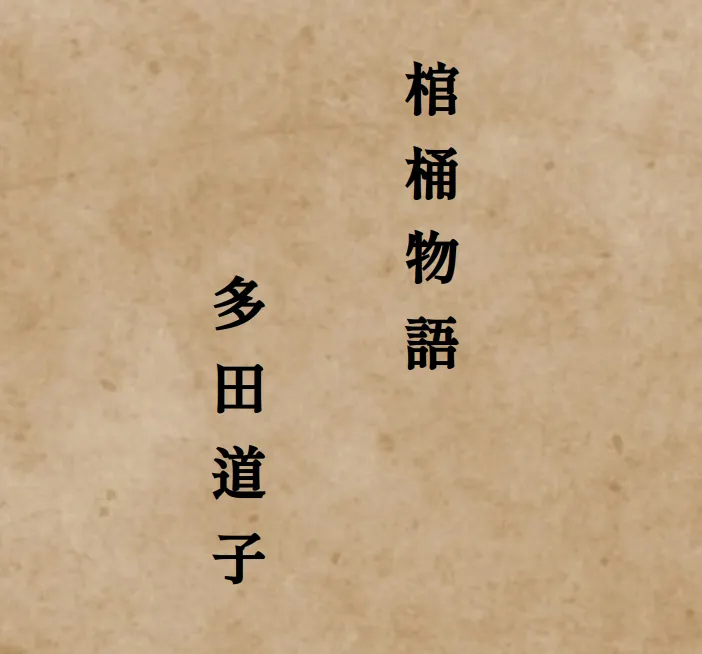 棺桶物語
多田道子